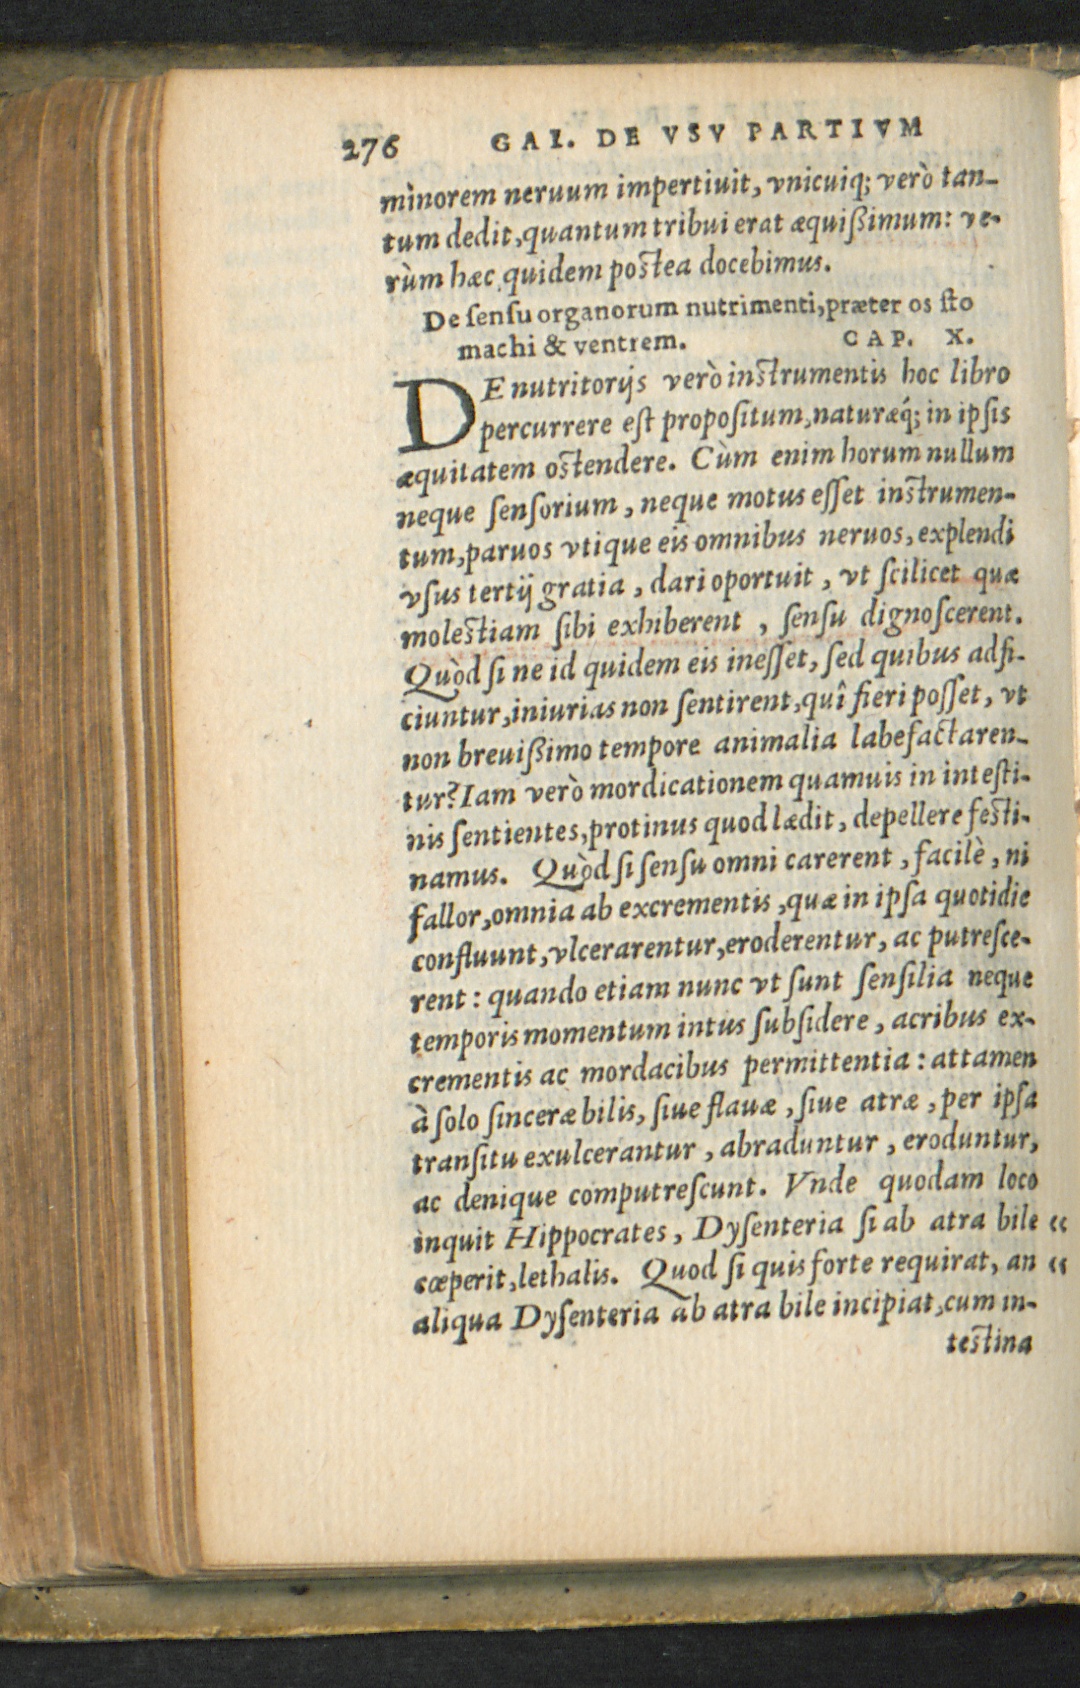 276 GAI. DE VSV PARTIVM
minorem neruum impertiuit, vnicuiq; verò tan-
tum dedit, quantum tribui erat æquißimum: ve-
rùm hæc quidem postea docebimus.
De sensu organorum nutrimenti, præter os sto
machi & ventrem. CAP. X.
DE nutritorijs verò instrumentis hoc libro
percurrere est propositum, naturæq́; in ipsis
æquitatem ostendere. Cùm enim horum nullum
neque sensorium, neque motus esset instrumen-
tum, paruos vtique eis omnibus neruos, explendi
vsus tertij gratia, dari oportuit, vt scilicet quæ
molestiam sibi exhiberent, sensu dignoscerent.
Quòd si ne id quidem eis inesset, sed quibus adfi-
ciuntur, iniurias non sentirent, quî fieri posset, vt
non breuißimo tempore animalia labefactaren-
tur? Iam verò mordicationem quamuis in intesti-
nis sentientes, protinus quod lædit, depellere festi-
namus. Quòd si sensu omni carerent, facilè, ni
fallor, omnia ab excrementis, quæ in ipsa quotidie
confluunt, vlcerarentur, eroderentur, ac putresce-
rent: quando etiam nunc vt sunt sensilia neque
temporis momentum intus subsidere, acribus ex-
crementis ac mordacibus permittentia: attamen
à solo sinceræ bilis, siue flauæ, siue atræ, per ipsa
transitu exulcerantur, abraduntur, eroduntur,
ac denique computrescunt. Vnde quodam loco
inquit Hippocrates, Dysenteria si ab atra bile “
cœperit, lethalis. Quod si quis forte requirat, an “
aliqua Dysenteria ab atra bile incipiat, cum in-
testina